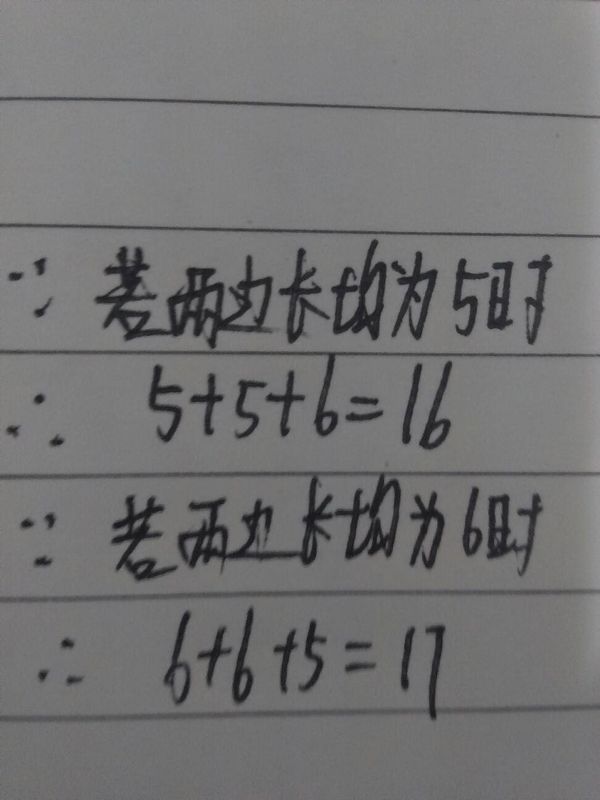 ∵ 若两边长均为5时
∴ 5+5+6=16
∵ 若两边长均为6时
∴ 6+6+5=17